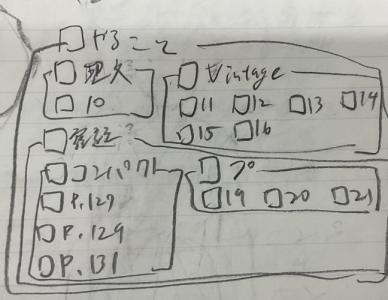 □ やること
□ 理久
□ 10
□ Vintage
□11 □12 □13 □14
□15 □16
□コンパクト
□P.127
□P.129
□P.131
□プ
□19 □20 □21